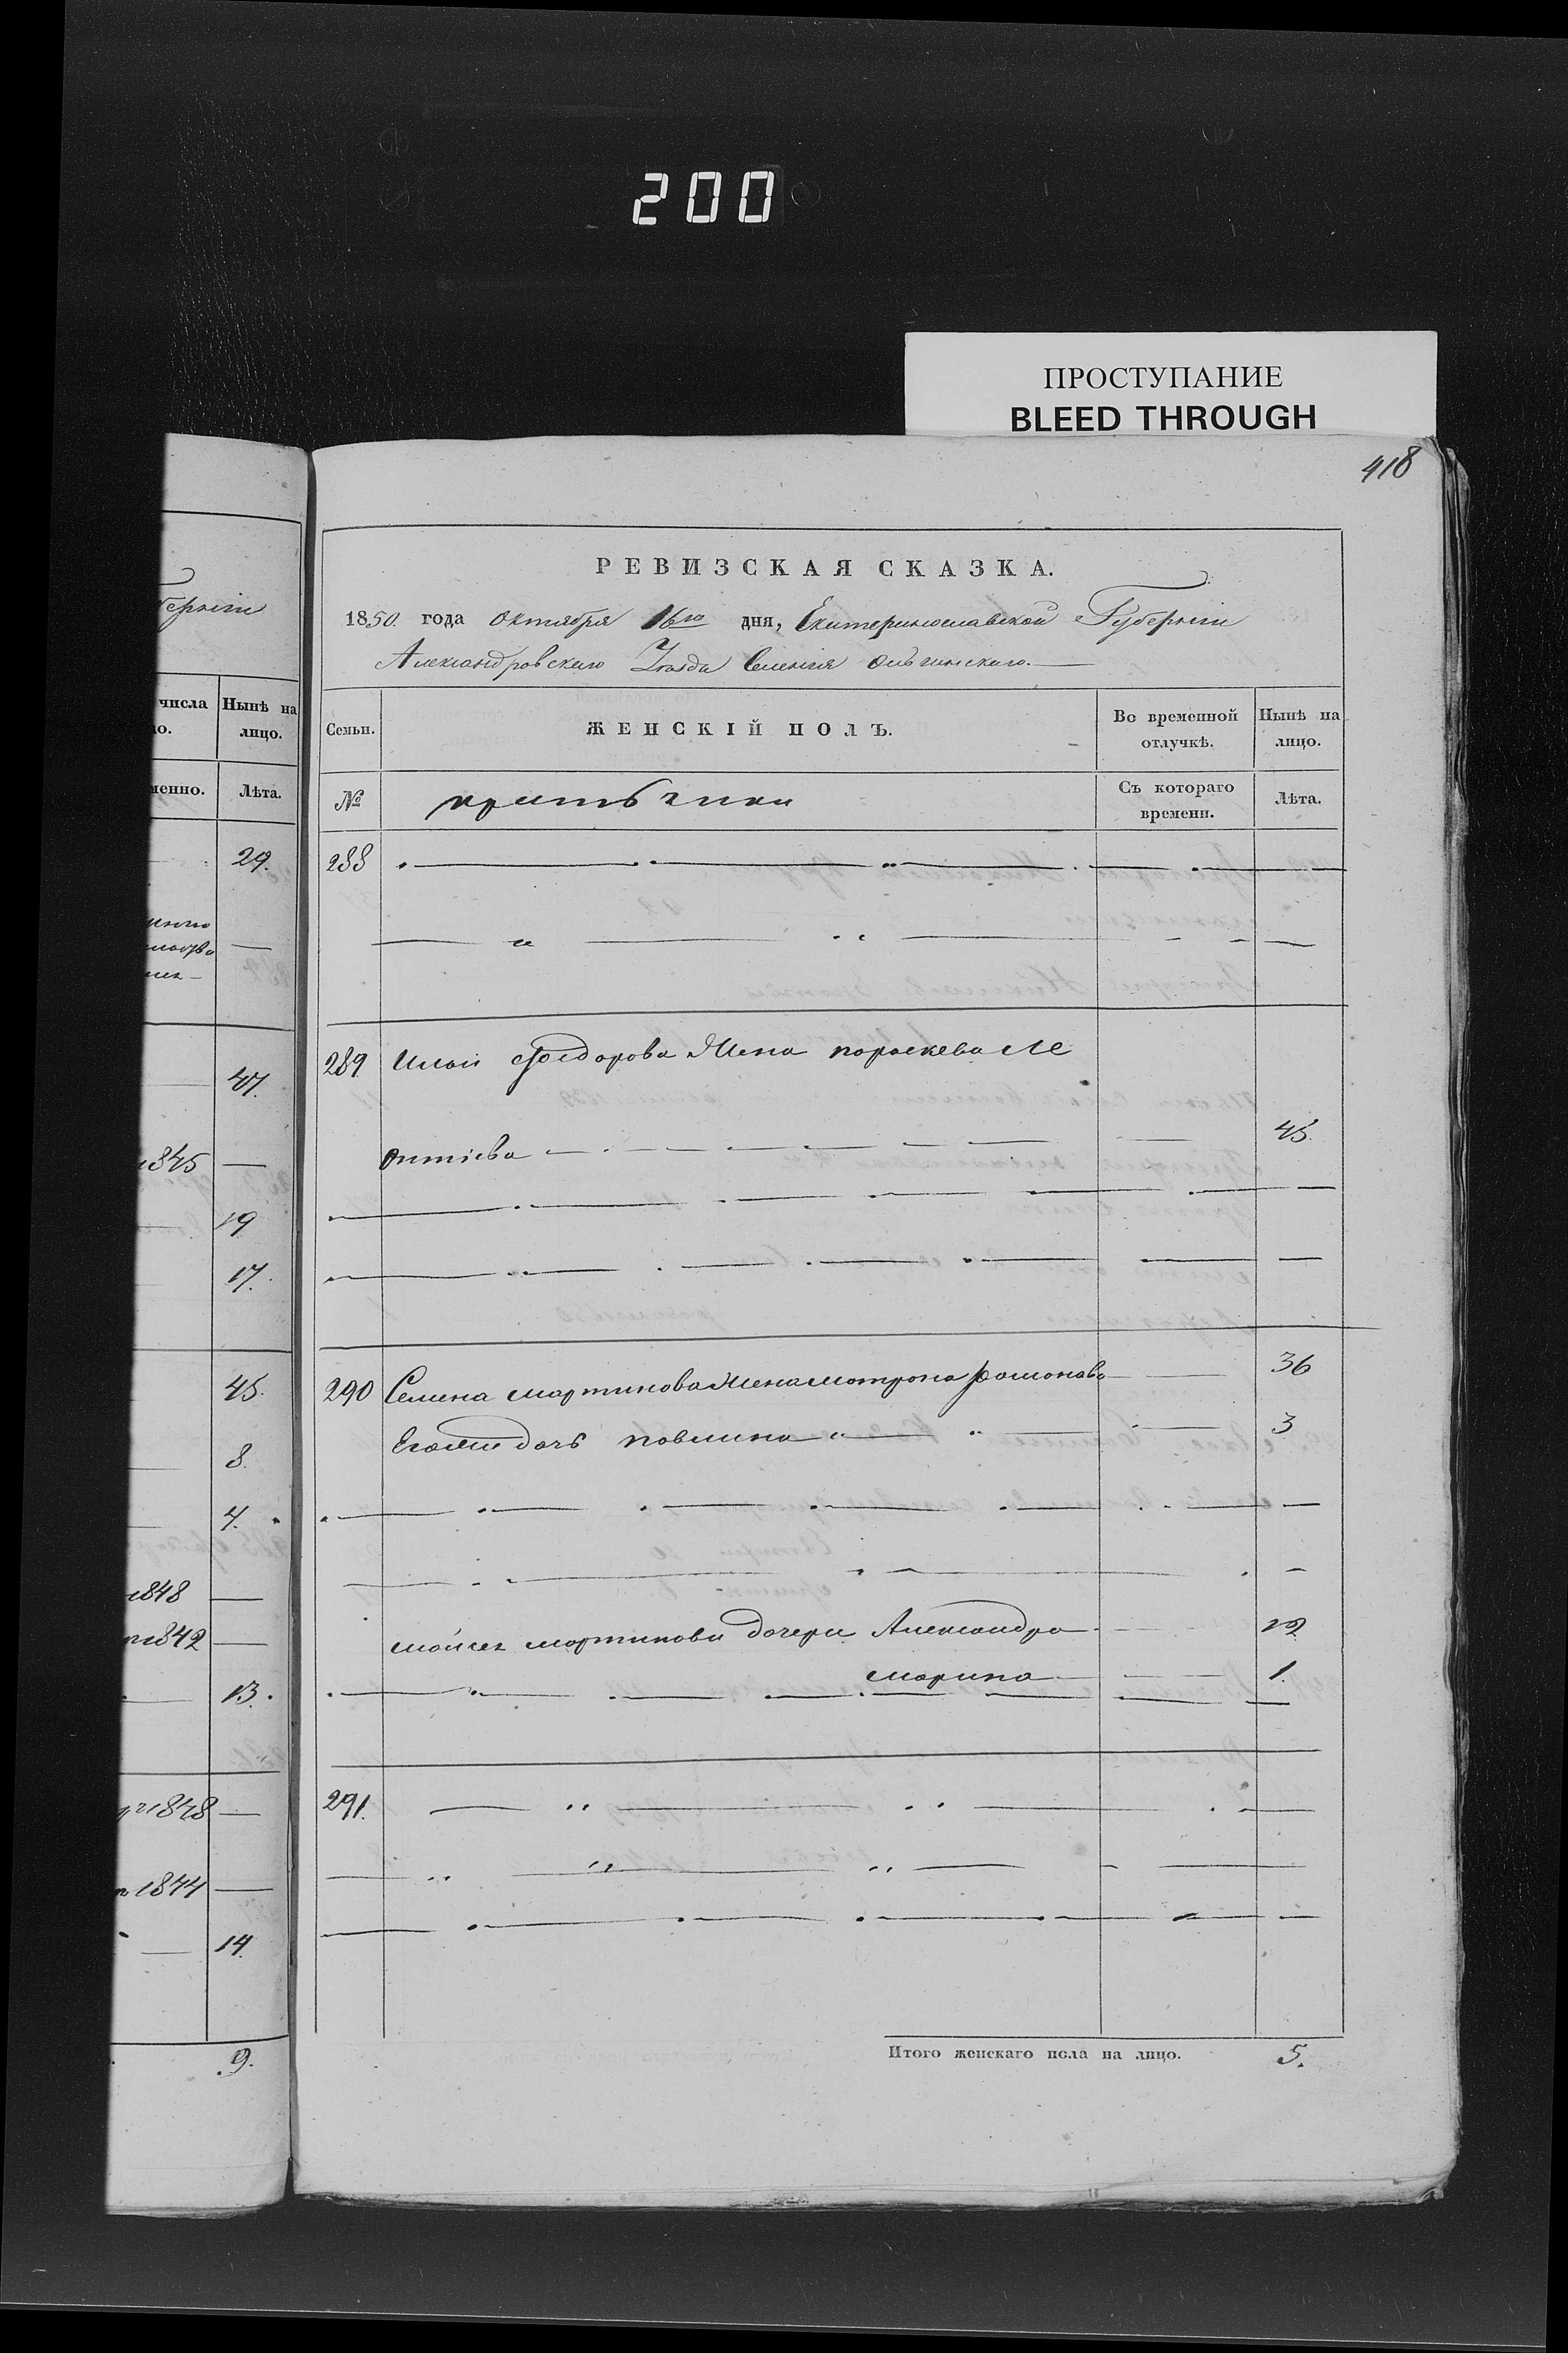 200
ПРОСТУПАНИЕ
BLEED THROUGH
418
РЕВИЗСКАЯ СКАЗКА.
1850. года октября 16го дня, Екатеринославской Губернiи
Александровскаго Уезда Селенiя Ольгинскаго.
Семьи.
ЖЕНСКIЙ ПОЛЪ.
Во временной отлучкѣ.
Нынѣ на лицо.
№
Съ котораго времени.
Лѣта.
288
289 Ильи Федорова Жена пораскева Ле
онтiева 45.
290 Семена мартинова Жена мотрона рамонова 36
Егожъ дочь повлина 3
мойсея мартинова дочери Александра
марина 1.
291.
Итого женскаго пола на лицо. 5.
губернiи
числа
Нынѣ на
лицо.
менно.
Лѣта.
29.
47.
1845
19
17.
45.
8.
4.
1848
1842
13.
1848
1844
14.
9.